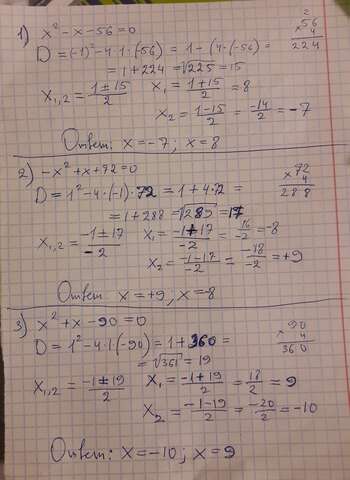 1) x² - x - 56 = 0
D = (-1)² - 4·1·(-56) = 1 - (4·(-56) =
= 1 + 224 = √225 = 15
2
56
× 4
224
x₁,₂ = (1 ± 15)/2 x₁ = (1 + 15)/2 = 8
x₂ = (1 - 15)/2 = -14/2 = -7
Ответ: x = -7; x = 8
2) -x² + x + 72 = 0
D = 1² - 4·(-1)·72 = 1 + 4·72 =
= 1 + 288 = √289 = 17
72
× 4
288
x₁,₂ = (-1 ± 17)/-2 x₁ = (-1 + 17)/-2 = 16/-2 = -8
x₂ = (-1 - 17)/-2 = -18/-2 = +9
Ответ x = +9, x = -8
3) x² + x - 90 = 0
D = 1² - 4·1·(-90) = 1 + 360 =
= √361 = 19
90
× 4
360
x₁,₂ = (-1 ± 19)/2 x₁ = (-1 + 19)/2 = 18/2 = 9
x₂ = (-1 - 19)/2 = -20/2 = -10
Ответ: x = -10; x = 9